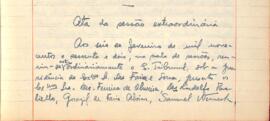 Ata da sessão extraordinária
Aos seis de fevereiro de mil nove-
centos e sessenta e dois, na sala de sessões, reu-
niu-extraordinariamente o E. Tribunal, sob a pre-
sidência do Exmo. D. des. Faria e Sousa, presentes os
Exmos. Srs. des. Ferreira de Oliveira, des. Rodolfo
Gonçalves de Faria Alvim, Samuel